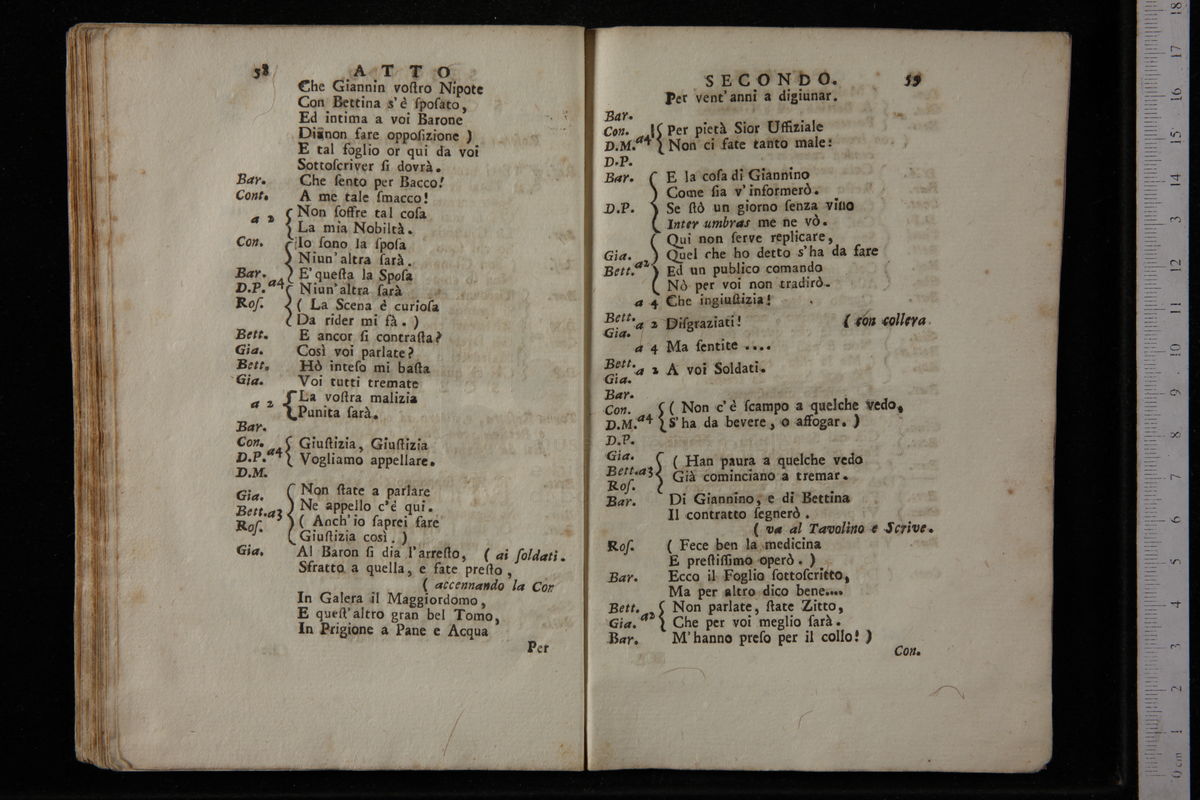 58 ATTO
Che Giannin voſtro Nipote
Con Bettina s'è ſpoſato,
Ed intima a voi Barone
Di non fare oppoſizione )
E tal foglio or qui da voi
Sottoſcriver ſi dovrà.
Bar. Che ſento per Bacco!
Cont. A me tale ſmacco!
a 2 { Non ſoffre tal coſa
La mia Nobiltà.
Con. { Io ſono la ſpoſa
Niun'altra ſarà.
Bar. { E' queſta la Spoſa
D.P. a4 Niun'altra ſarà
Roſ. { ( La Scena è curioſa
Da rider mi fà. )
Bett. E ancor ſi contraſta?
Gia. Così voi parlate?
Bett. Hò inteſo mi baſta
Gia. Voi tutti tremate
a 2 { La voſtra malizia
Punita ſarà.
Bar.
Con. a4 { Giuſtizia, Giuſtizia
D.P. Vogliamo appellare.
D.M.
Gia. { Non ſtate a parlare
Bett. a3 Ne appello c'è qui.
Roſ. ( Anch'io ſaprei fare
Giuſtizia così. )
Gia. Al Baron ſi dia l'arreſto, ( ai ſoldati.
Sfratto a quella, e fate preſto,
( accennando la Con
In Galera il Maggiordomo,
E queſt'altro gran bel Tomo,
In Prigione a Pane e Acqua
Per
SECONDO. 59
Per vent'anni a digiunar.
Bar.
Con. a4 { Per pietà Sior Uffiziale
D.M. Non ci fate tanto male:
D.P.
Bar. { E la coſa di Giannino
Come ſia v'informerò.
D.P. Se ſtò un giorno ſenza vino
Inter umbras me ne vò.
{ Qui non ſerve replicare,
Gia. a2 Quel che ho detto s'ha da fare
Bett. Ed un publico comando
Nò per voi non tradirò.
a 4 Che ingiuſtizia!
Bett. a 2 Diſgraziati! ( con collera.
Gia.
a 4 Ma ſentite ....
Bett. a 2 A voi Soldati.
Gia.
Bar.
Con. a4 { ( Non c'è ſcampo a quelche vedo,
D.M. S'ha da bevere, o affogar. )
D.P.
Gia. { ( Han paura a quelche vedo
Bett. a3 Già cominciano a tremar.
Roſ.
Bar. Di Giannino, e di Bettina
Il contratto ſegnerò.
( va al Tavolino e Scrive.
Roſ. ( Fece ben la medicina
E preſtiſſimo operò. )
Bar. Ecco il Foglio ſottoſcritto,
Ma per altro dico bene....
Bett. a2 { Non parlate, ſtate Zitto,
Gia. Che per voi meglio ſarà.
Bar. M'hanno preſo per il collo! )
Con.
0 cm 1 2 3 4 5 6 7 8 9 10 11 12 13 14 15 16 17 18